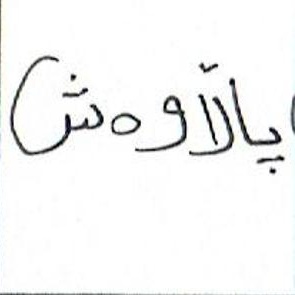 پاڵاوەش